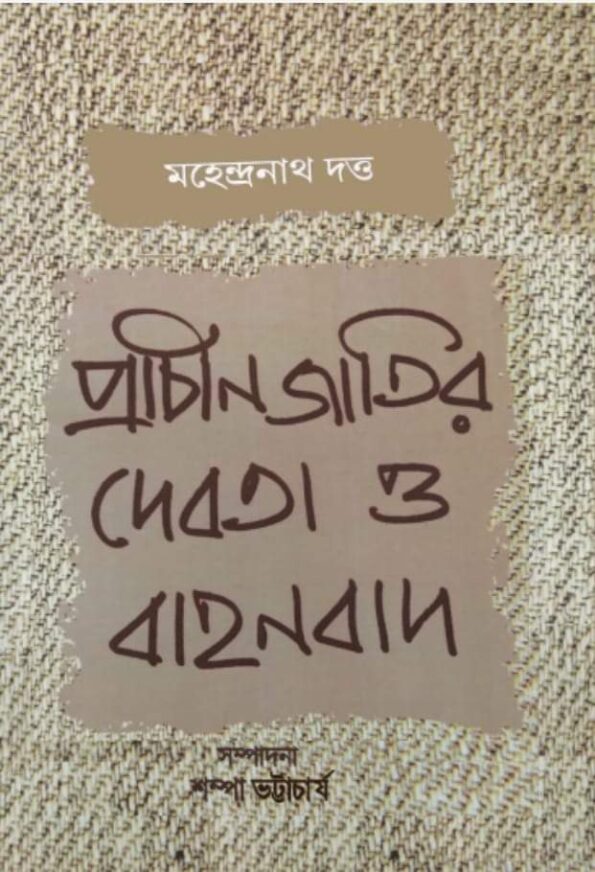 মহেন্দ্রনাথ দত্ত
প্রাচীন জাতির
দেবতা ও
বাহনবাদ
সম্পাদনা
শম্পা ভট্টাচার্য